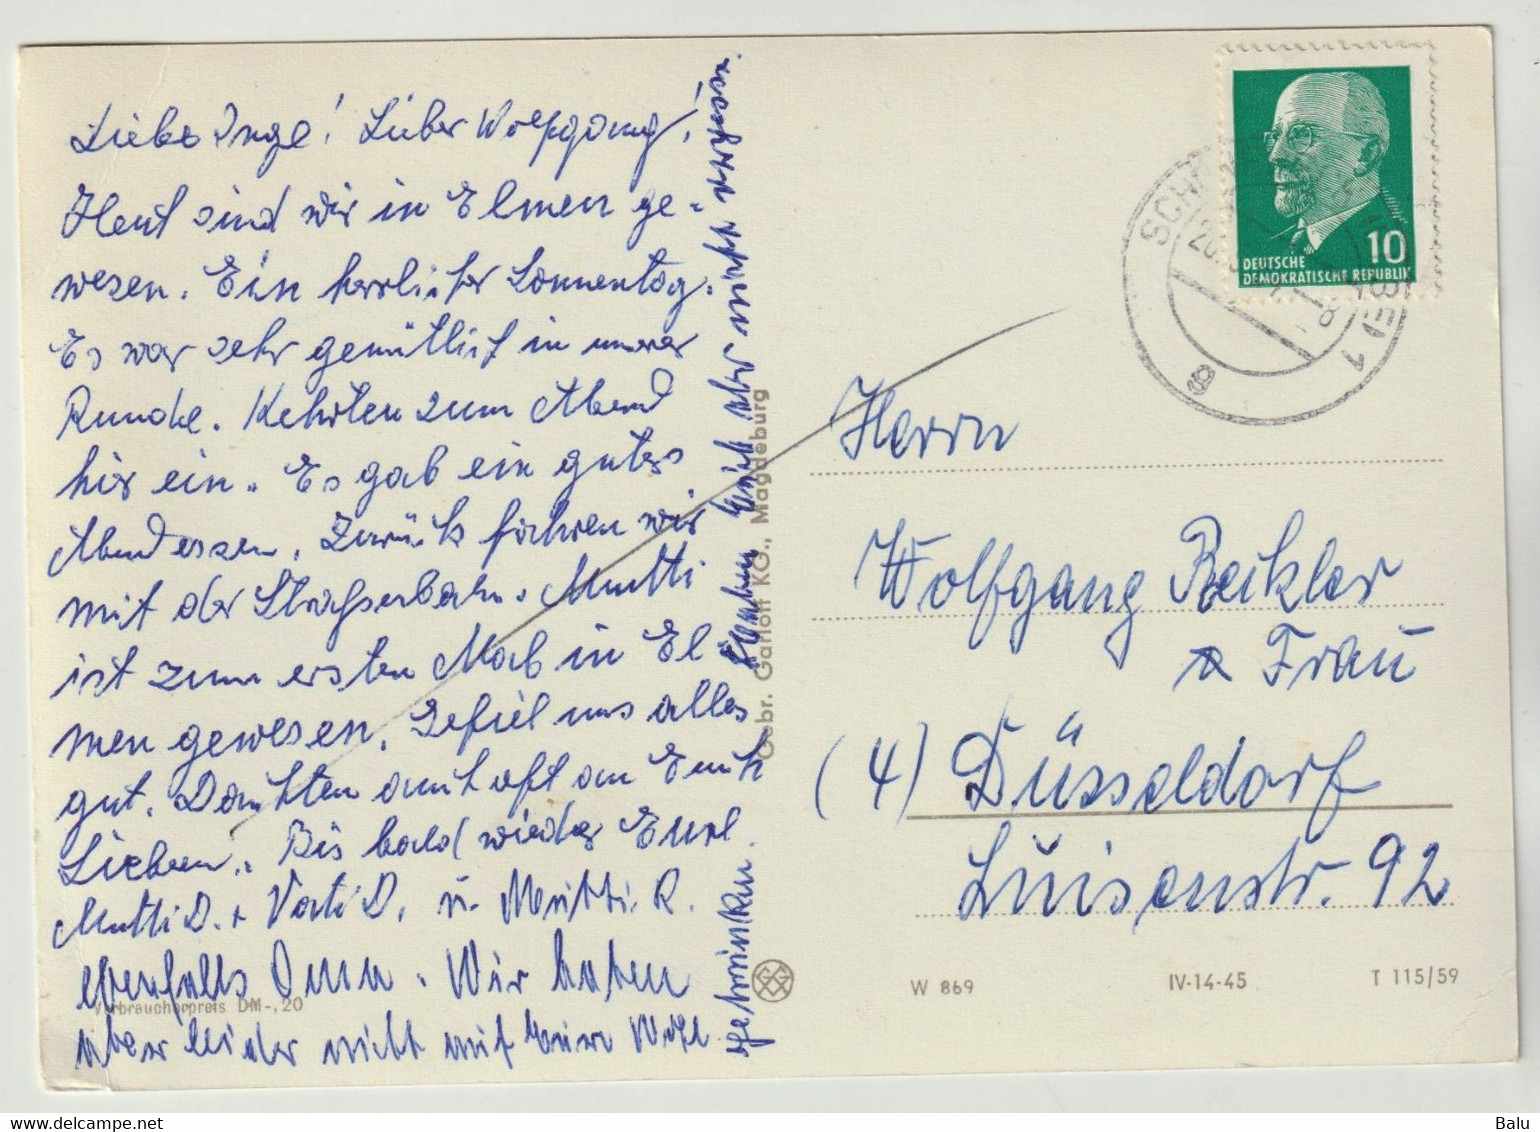 Liebe Inge! Lieber Wolfgang!
Heut sind wir in Elmen ge-
wesen. Ein herrlicher Sonnentag.
Es war sehr gemütlich in unserer
Runde. Kehrten zum Abend
hier ein. Es gab ein gutes
Abendessen. Zurück fahren wir
mit der Straßenbahn. Mutti
ist zum ersten Mal in El
men gewesen. Gefiel uns alles
gut. Dachten auch oft an Euch
Lieben. Bis bald wieder Eure
Mutti D. + Vati D. u. Mutti R.
ebenfalls Oma. Wir haben
aber leider nicht auf Euer Wohl
getrunken
haben Euch aber nicht vergessen
Gebr. Garloff KG., Magdeburg
Verbraucherpreis DM -,20
DEUTSCHE
DEMOKRATISCHE REPUBLIK
10
SCH
20
8
1
g
Herrn
Wolfgang Beikler
u Frau
(4) Düsseldorf
Luisenstr. 92
W 869
IV-14-45
T 115/59
Balu